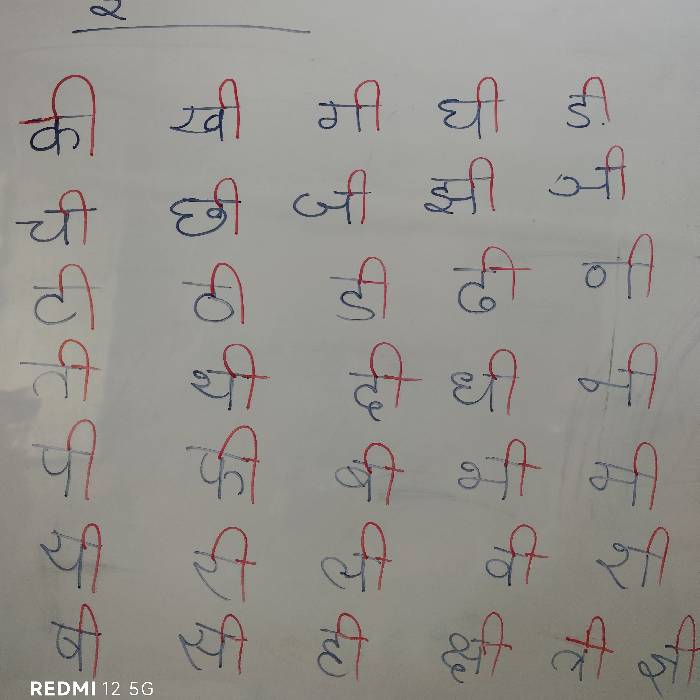 की खी गी घी ङी
ची छी जी झी ञी
टी ठी डी ढी णी
ती थी दी धी नी
पी फी बी भी मी
यी री ली वी शी
षी सी ही क्षी त्री ज्ञी
REDMI 12 5G